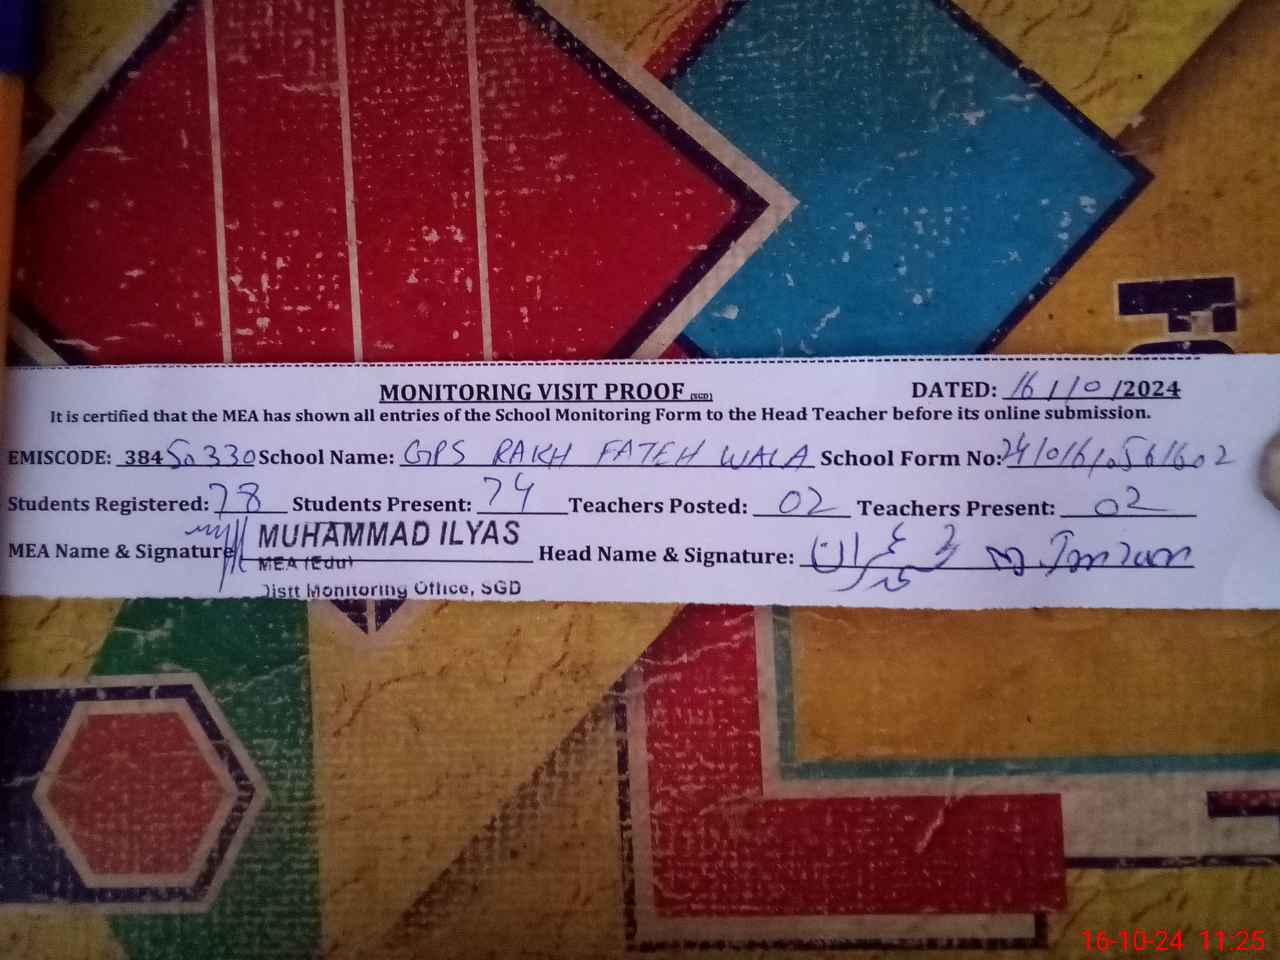 MONITORING VISIT PROOF (SGD) DATED: 16/10/2024
It is certified that the MEA has shown all entries of the School Monitoring Form to the Head Teacher before its online submission.
EMISCODE: 38450330 School Name: GPS RAKH FATEH WALA School Form No:
Students Registered: 78 Students Present: 74 Teachers Posted: 02 Teachers Present: 02
MEA Name & Signature MUHAMMAD ILYAS Head Name & Signature: محمد عمران M. Imran
MEA (Edu)
Distt Monitoring Office, SGD
16-10-24 11:25